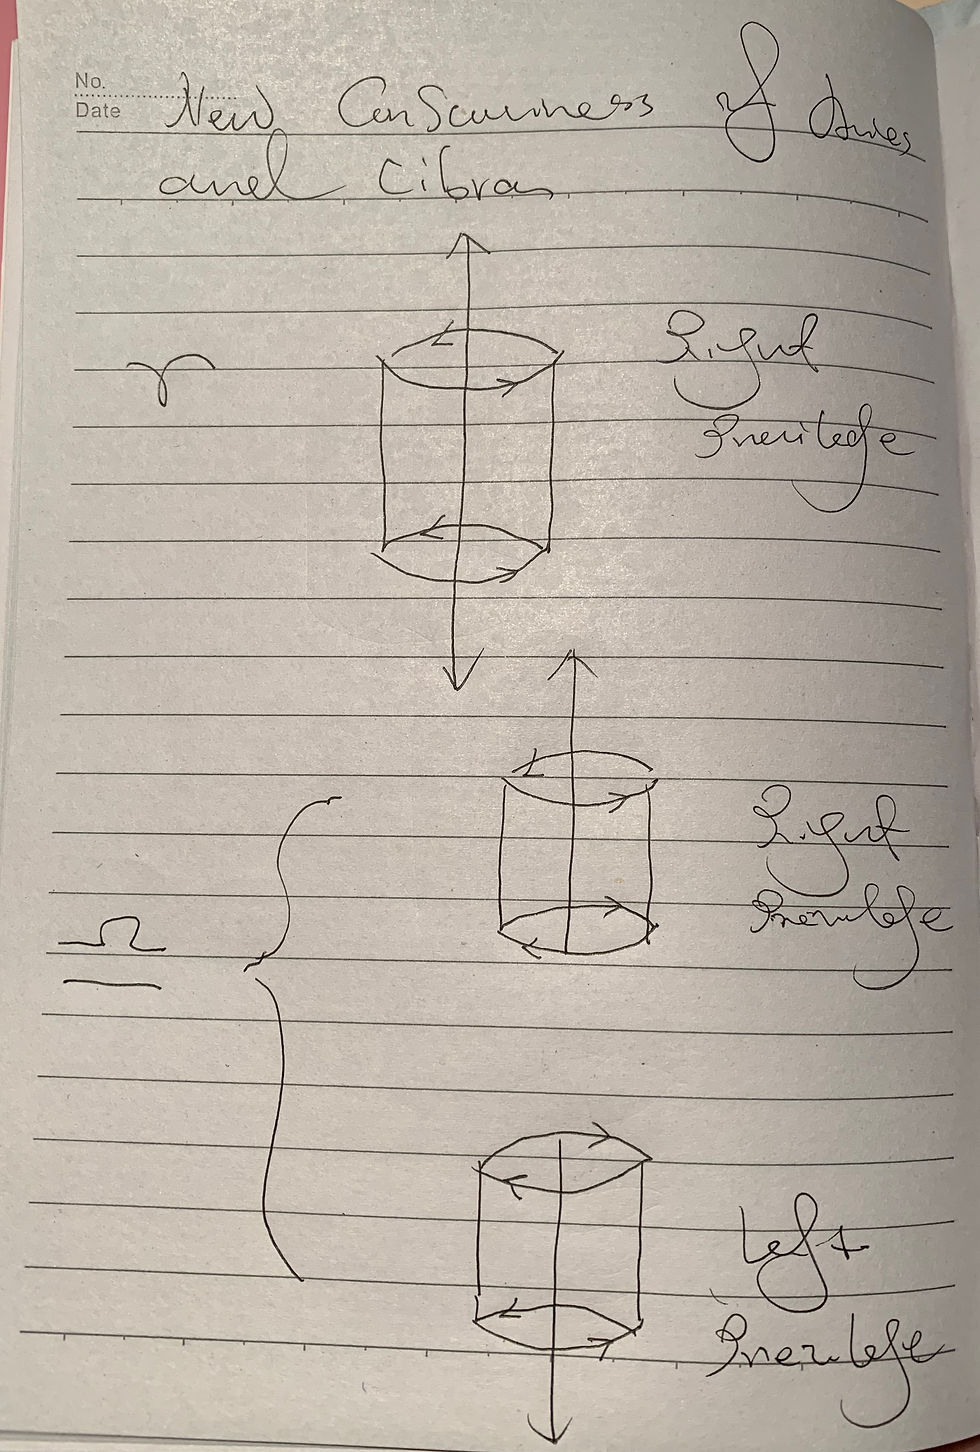 No.
Date
New Consciuness of Aries
and Libra
♈
Right
Previledge
Right
Previledge
♎
Left
Previledge